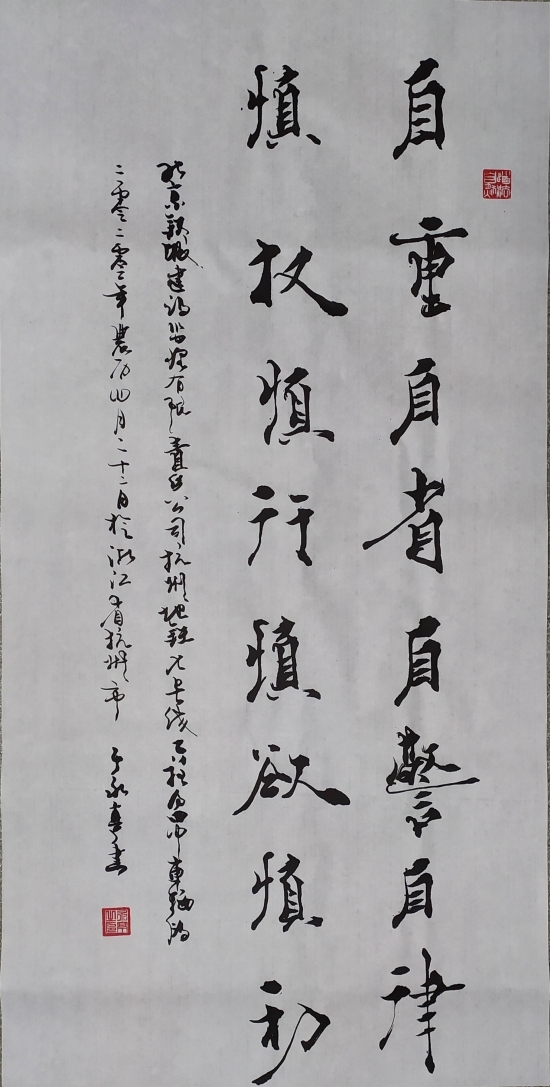 自重自省自警自律
慎权慎行慎欲慎初
北京铁城建设监理有限责任公司杭州地铁八号线
二零二零年农历四月二十二日于浙江省杭州市